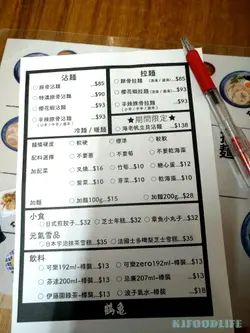 沾麵
○豚骨沾麵 ...$85
○特濃豚骨沾麵 ...$90
○櫻花蝦沾麵 ...$93
○辛辣豚骨沾麵 ...$93
冷麵 / 暖麵
拉麵
○豚骨拉麵 $85
○櫻花蝦拉麵
○辛辣豚骨拉麵 ...$93
★期間限定★
○海老帆立貝沾麵 ...$138
麵條硬度
○軟硬
○標準
○較軟
配料選擇
○不要蔥
○不要筍
○不要乾海藻
加配菜
○叉燒 ...$16
○竹筍 ...$10
○糖心蛋 ...$12
○紫菜 ...$10
○芽菜 ...$10
○乾海藻 ...$12
加麵
○加麵100g...$15
○加麵200g...$28
小食
○日式煎餃子...$32
○芝士年糕...$32
○章魚小丸子...$32
元氣雪品
○日本宇治抹茶雪糕...$35
○法國士多啤梨芝士雪糕...$35
飲料
○可樂192ml-樽裝 ...$18
○可樂zero192ml-樽裝...$18
○芬達200ml-樽裝 ...$18
○忌廉207ml-樽裝 ...$18
○伊藤園綠茶-樽裝 ...$18
○波子氣水-樽裝 ...$18
鶴亀
KJFOODLIFE